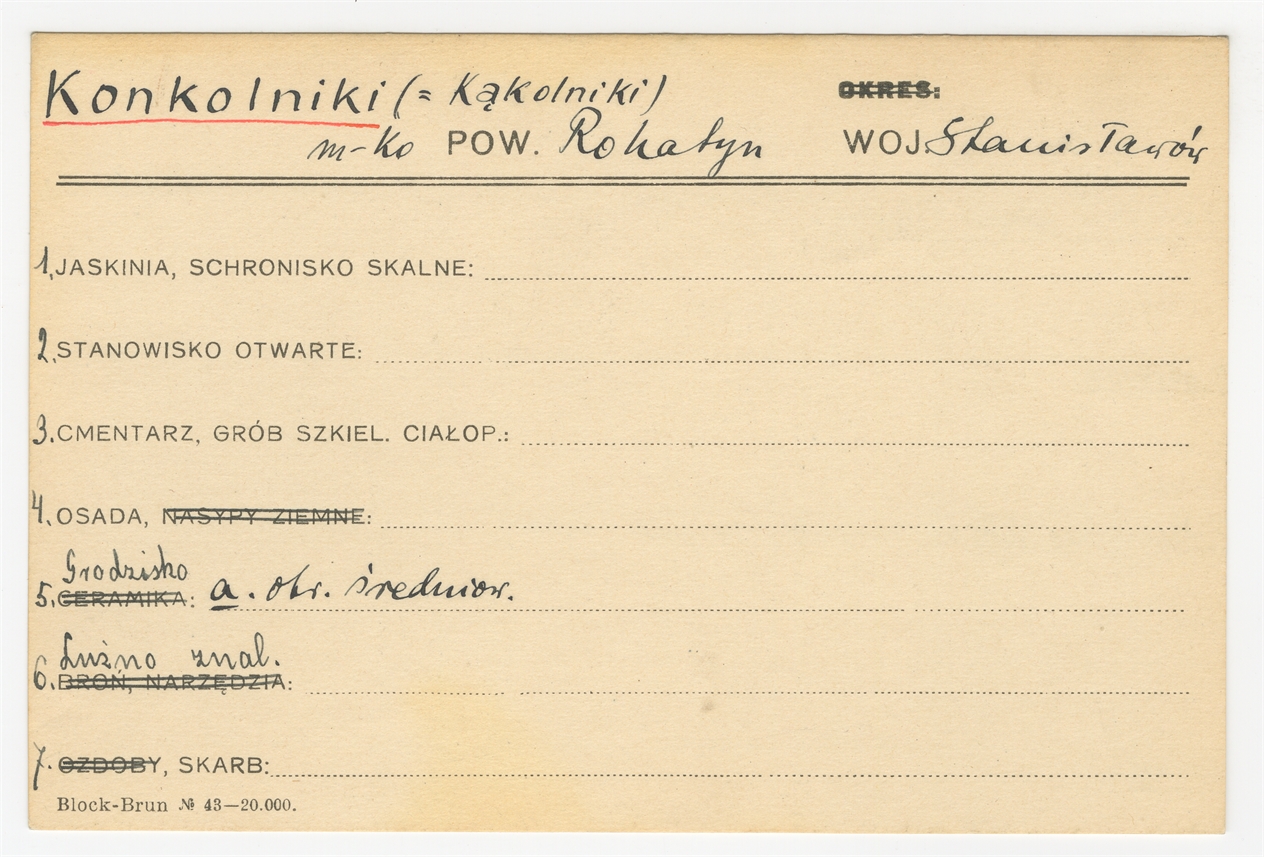 Konkolniki (= Kąkolniki) OKRES:
m-ko POW. Rohatyn WOJ. Stanisławów
1. JASKINIA, SCHRONISKO SKALNE:
2. STANOWISKO OTWARTE:
3. CMENTARZ, GRÓB SZKIEL. CIAŁOP.:
4. OSADA, NASYPY ZIEMNE:
Grodzisko
5. CERAMIKA: a. otw. średniow.
Luźno znal.
6. BROŃ, NARZĘDZIA:
7. OZDOBY, SKARB:
Block-Brun № 43—20.000.